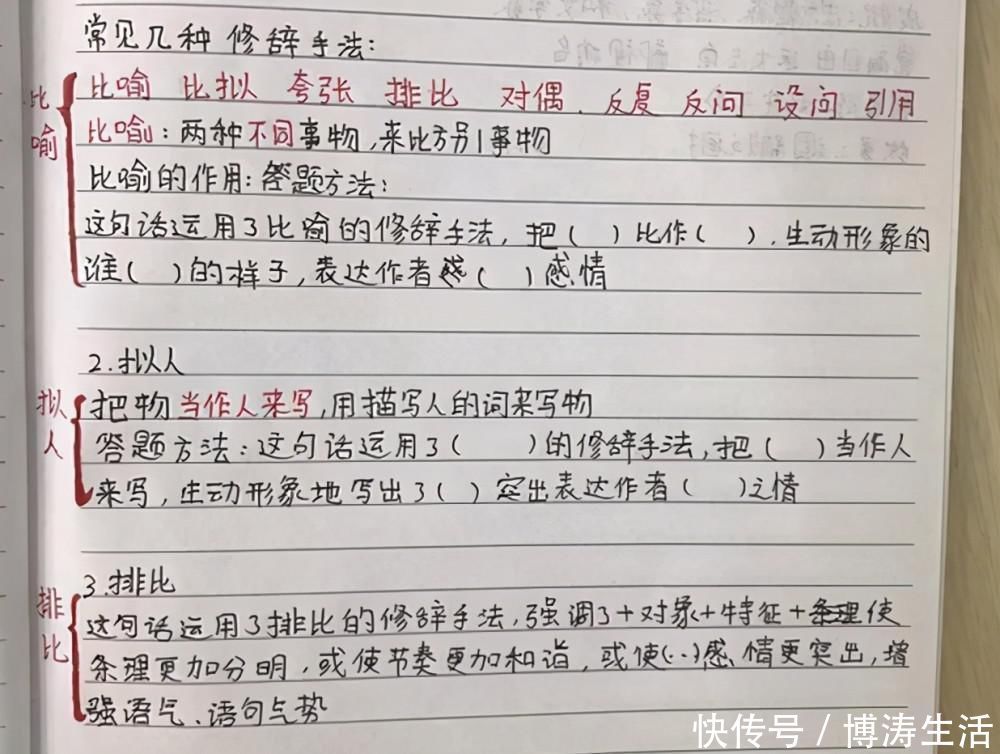 常见几种修辞手法：
比喻 比拟 夸张 排比 对偶、反复 反问 设问 引用
比喻
比喻：两种不同事物，来比方另1事物
比喻的作用：答题方法：
这句话运用了比喻的修辞手法，把（ ）比作（ ），生动形象的
谁（ ）的样子，表达作者（ ）感情
2.拟人
拟人
把物当作人来写，用描写人的词来写物
答题方法：这句话运用了（ ）的修辞手法，把（ ）当作人
来写，生动形象地写出了（ ）突出表达作者（ ）之情
3.排比
排比
这句话运用了排比的修辞手法，强调了+对象+特征+条理使
条理更加分明，或使节奏更加和谐，或使(··)感情更突出，增
强语气、语句气势
快传号 / 博涛生活